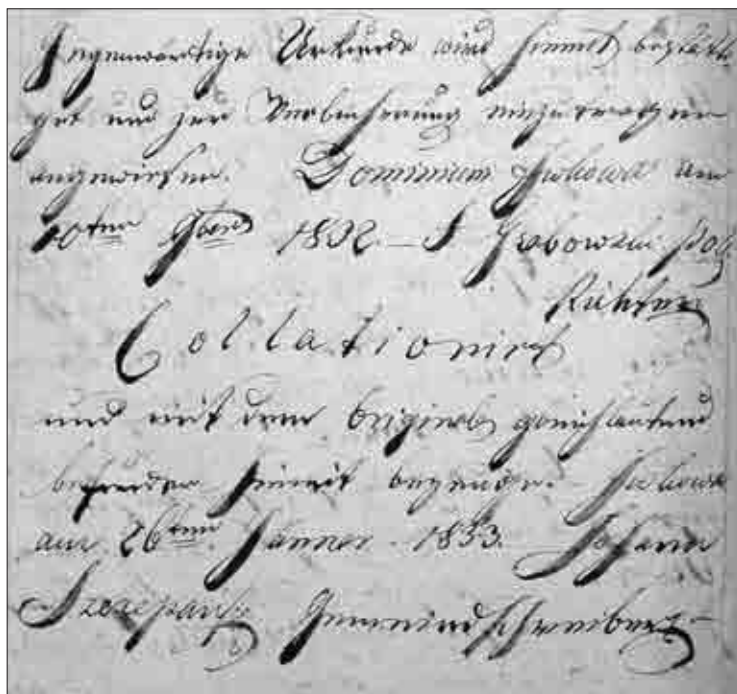 Gegenwärtige Urkunde wird hiemit bestäti-
get und zur Verbücherung einzutragen
angewiesen. Dominium am
10ten 1832 — Grabowski Pol.
Richter
Collationirt
und mit dem Original gleichlautend
befunden hiemit bezeuge.
am 26ten Jänner 1833. Johann
Szczepański Gemeindschreiber